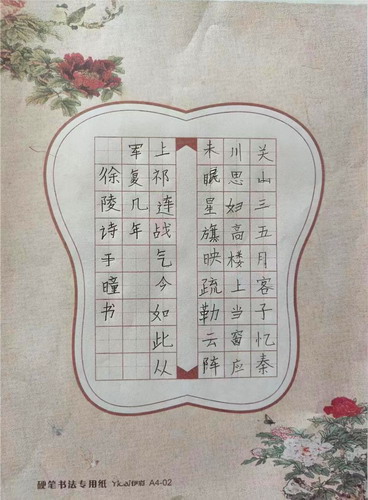 关山三五月客子忆秦
川思妇高楼上当窗应
未眠星旗映疏勒云阵
上祁连战气今如此从
军复几年
徐陵诗于瞳书
硬笔书法专用纸 Yicai伊彩 A4-02